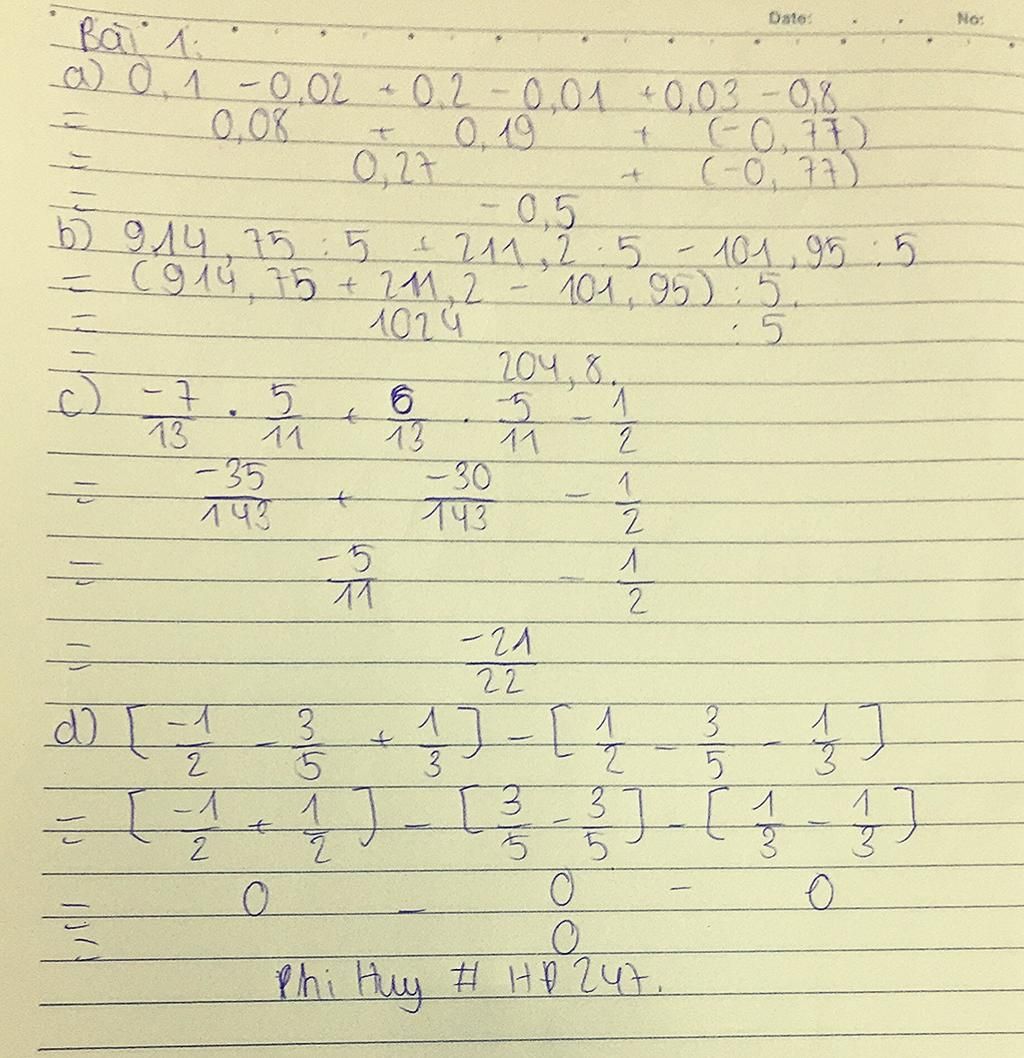 Date: . . No:
Bài 1:
a) 0,1 - 0,02 + 0,2 - 0,01 + 0,03 - 0,8
= 0,08 + 0,19 + (-0,77)
= 0,27 + (-0,77)
= -0,5
b) 914,75 : 5 + 211,2 : 5 - 101,95 : 5
= (914,75 + 211,2 - 101,95) : 5.
= 1024 : 5
= 204,8.
c) -7/13 . 5/11 + 6/13 . -5/11 - 1/2
= -35/143 + -30/143 - 1/2
= -5/11 - 1/2
= -21/22
d) [-1/2 - 3/5 + 1/3] - [1/2 - 3/5 - 1/3]
= [-1/2 + 1/2] - [3/5 - 3/5] - [1/3 - 1/3]
= 0 - 0 - 0
= 0
Phi Huy # HĐ247.